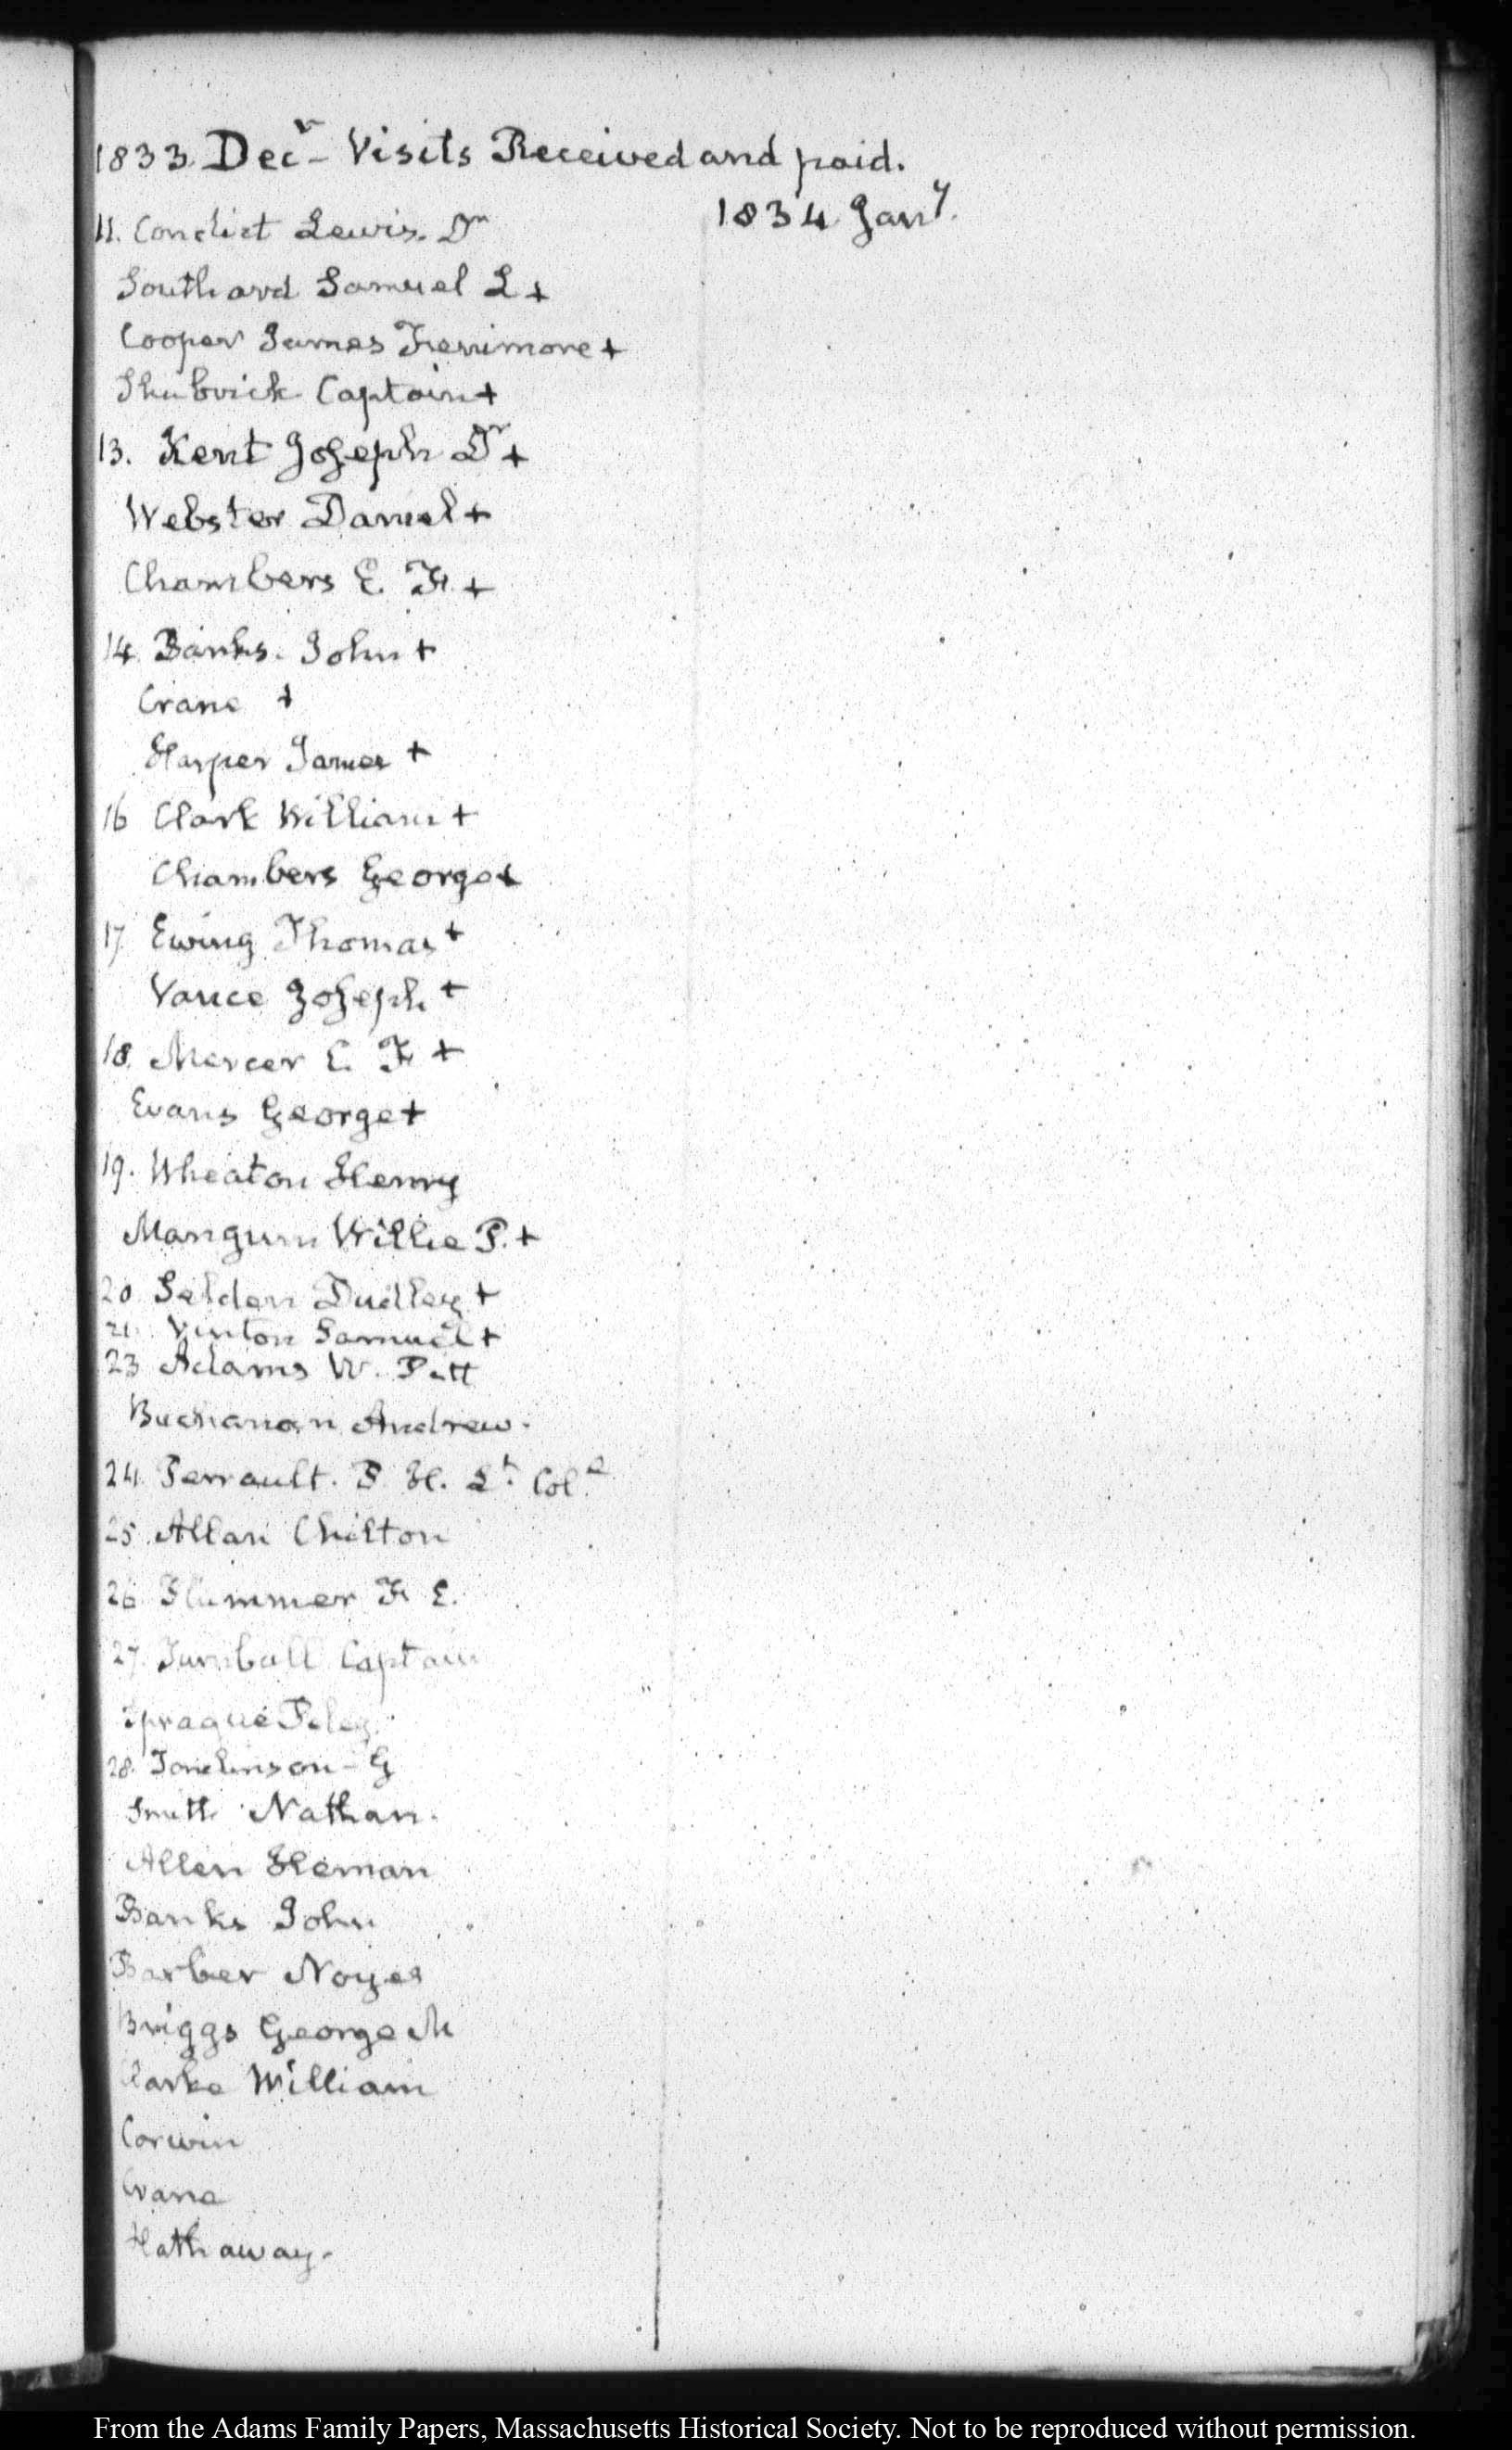 1833. Decr- Visits Received and paid.
1834 Jany.
11. Condict Lewis. Dr
Southard Samuel L +
Cooper James Fenimore +
Shubrick Captain +
13. Kent Joseph Dr +
Webster Daniel +
Chambers E. F. +
14. Banks. John +
Crane +
Harper James +
16 Clark William +
Chambers George +
17 Ewing Thomas +
Vance Joseph +
18. Mercer C. F. +
Evans George +
19. Wheaton Henry
Mangum Willie P. +
20 Selden Dudley +
21. Vinton Samuel +
23 Adams W. Pitt
Buchanan Andrew.
24. Perrault. P. H. Lt. Coll.
25. Allan Chilton
26 Plummer F. E.
27. Turnbull Captain
Sprague Peleg.
28. Tomlinson - G
Smith Nathan.
Allen Heman
Banks John
Barber Noyes
Briggs George N
Clarke William
Corwin
Crane
Hathaway.
From the Adams Family Papers, Massachusetts Historical Society. Not to be reproduced without permission.